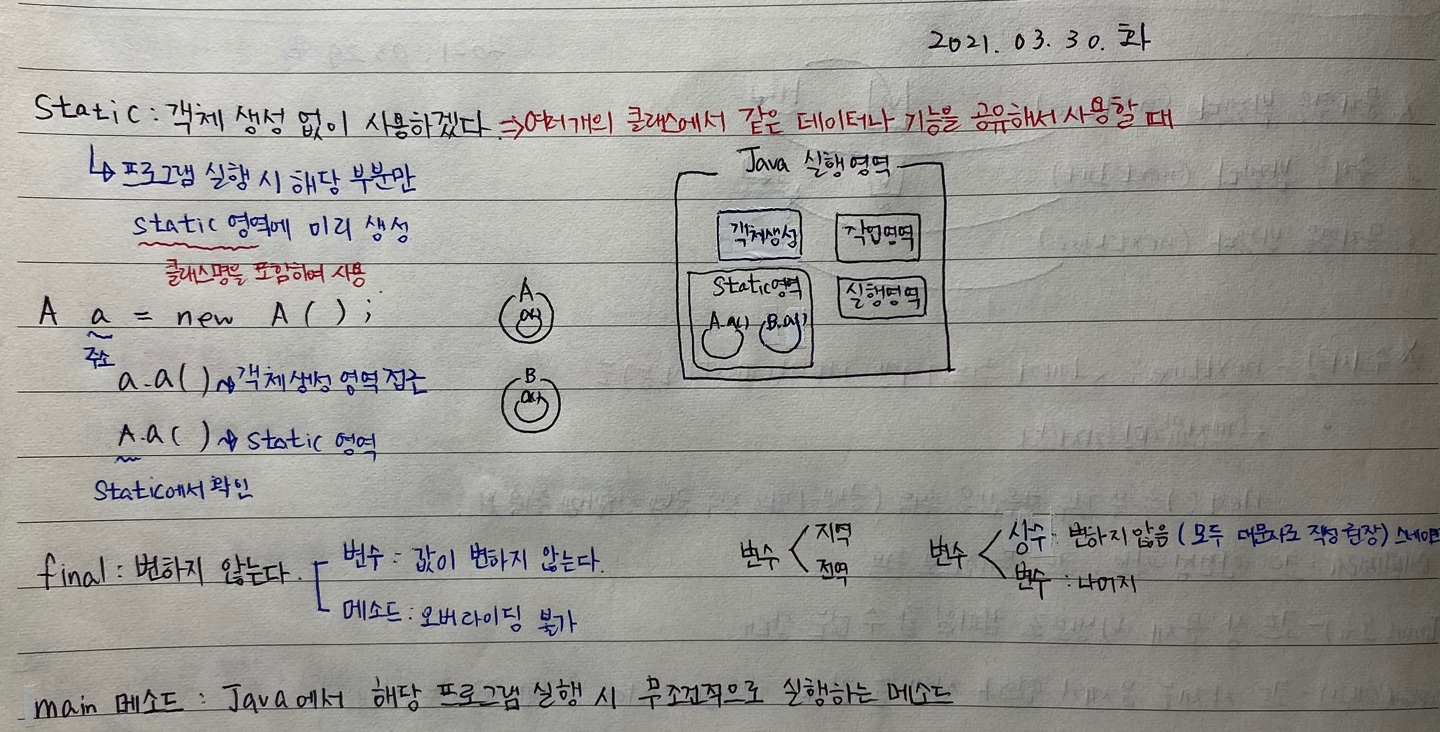 2021. 03. 30. 화
Static : 객체 생성 없이 사용하겠다. ⇒ 여러개의 클래스에서 같은 데이터나 기능을 공유해서 사용할 때
↳ 프로그램 실행 시 해당 부분만
static 영역에 미리 생성
클래스명을 포함하여 사용
Java 실행영역
객체생성 작업영역
Static영역 실행영역
A.a() B.a()
A a = new A();
주소
A
a()
a.a() → 객체생성 영역 접근
B
a()
A.a() → static 영역
Static에서 확인
final : 변하지 않는다.
변수 : 값이 변하지 않는다.
메소드 : 오버라이딩 불가
변수 < 지역
전역
변수 < 상수 : 변하지 않음 (모두 대문자로 작성 권장)
변수 : 나머지
main 메소드 : Java에서 해당 프로그램 실행 시 무조건적으로 실행하는 메소드